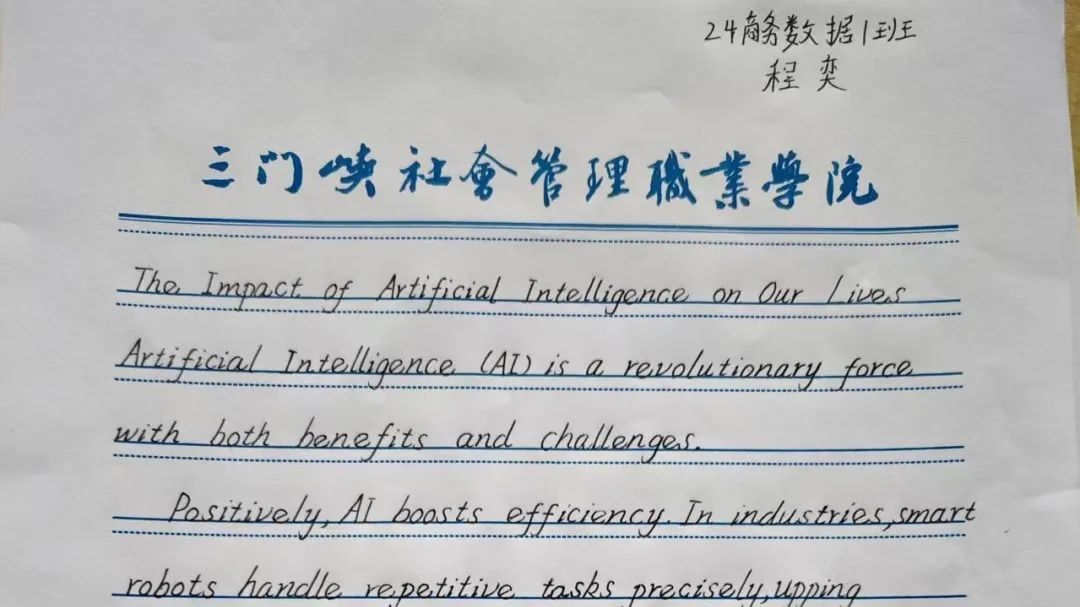 24商务数据1班
程奕
三门峡社會管理職業學院
The Impact of Artificial Intelligence on Our Lives
Artificial Intelligence (AI) is a revolutionary force
with both benefits and challenges.
Positively, AI boosts efficiency. In industries, smart
robots handle repetitive tasks precisely, upping